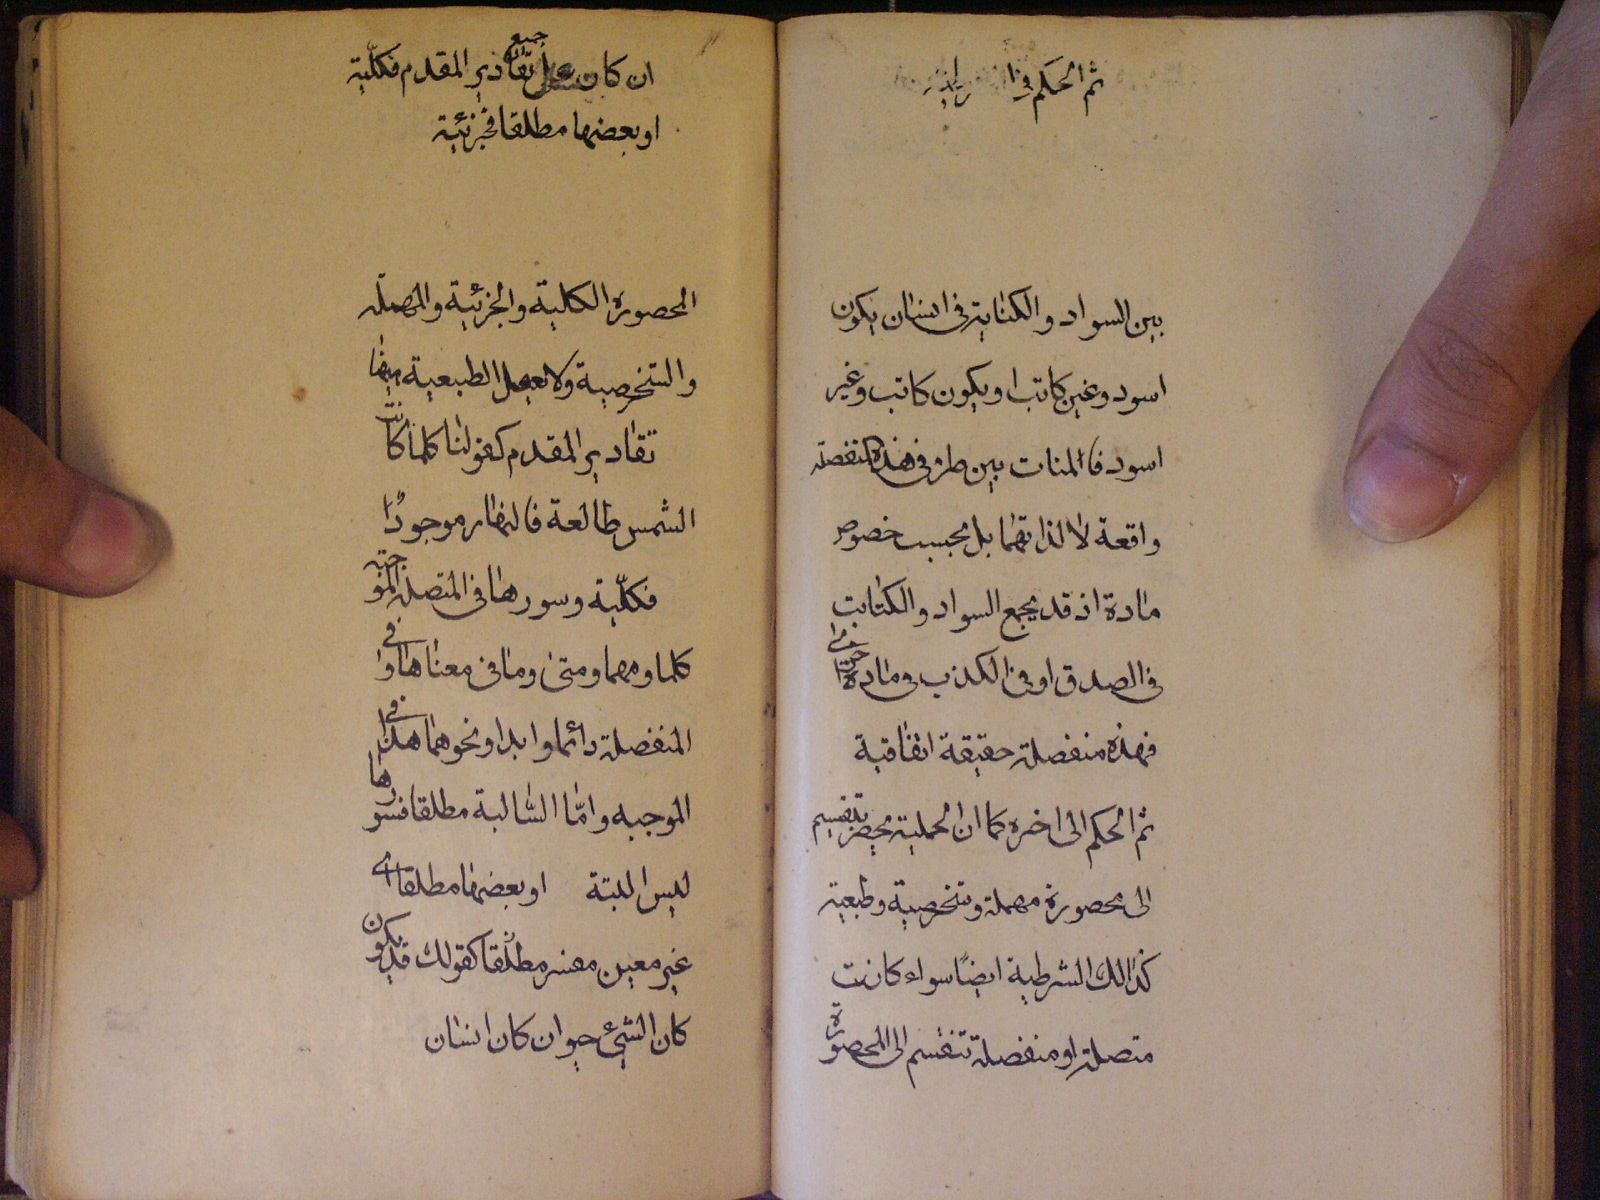 ثم الحكم في
بين السواد والكتابة في انسان يكون
اسود وغير كاتب او يكون كاتب وغير
اسود فالمنات بين طرفي هذه المنفصلة
واقعة لا لذاتهما بل بحسب خصوص
مادة اذ قد يجمع السواد والكتابت
في الصدق او في الكذب في مادة اخرى
فهذه منفصلة حقيقة اتفاقية
ثم الحكم الى اخره كما ان الحملية تنقسم
الى محصورة مهملة وشخصية وطبعية
كذالك الشرطية ايضًا سواء كانت
متصلة او منفصلة تنقسم الى المحصورة
ان كان على جميع تقادير المقدم فكلّية
او بعضها مطلقا فجزئية
المحصورة الكلية والجزئية والمهملة
والشخصية ولا الطبيعية
تقادير المقدم كقولنا كلما كانت
الشمس طالعة فالنهار موجودًا
فكلّية وسورها في المتصلة الموجبة
كلما ومهما ومتى وما في معناها وفي
المنفصلة دائما وابدا ونحوهما هذا في
الموجبه وامّا السّالبة مطلقا فسورها
ليس البتة او بعضها مطلقا اي
غير معين مطلقا كقولك قد يكون
كان الشيء حيوان كان انسان